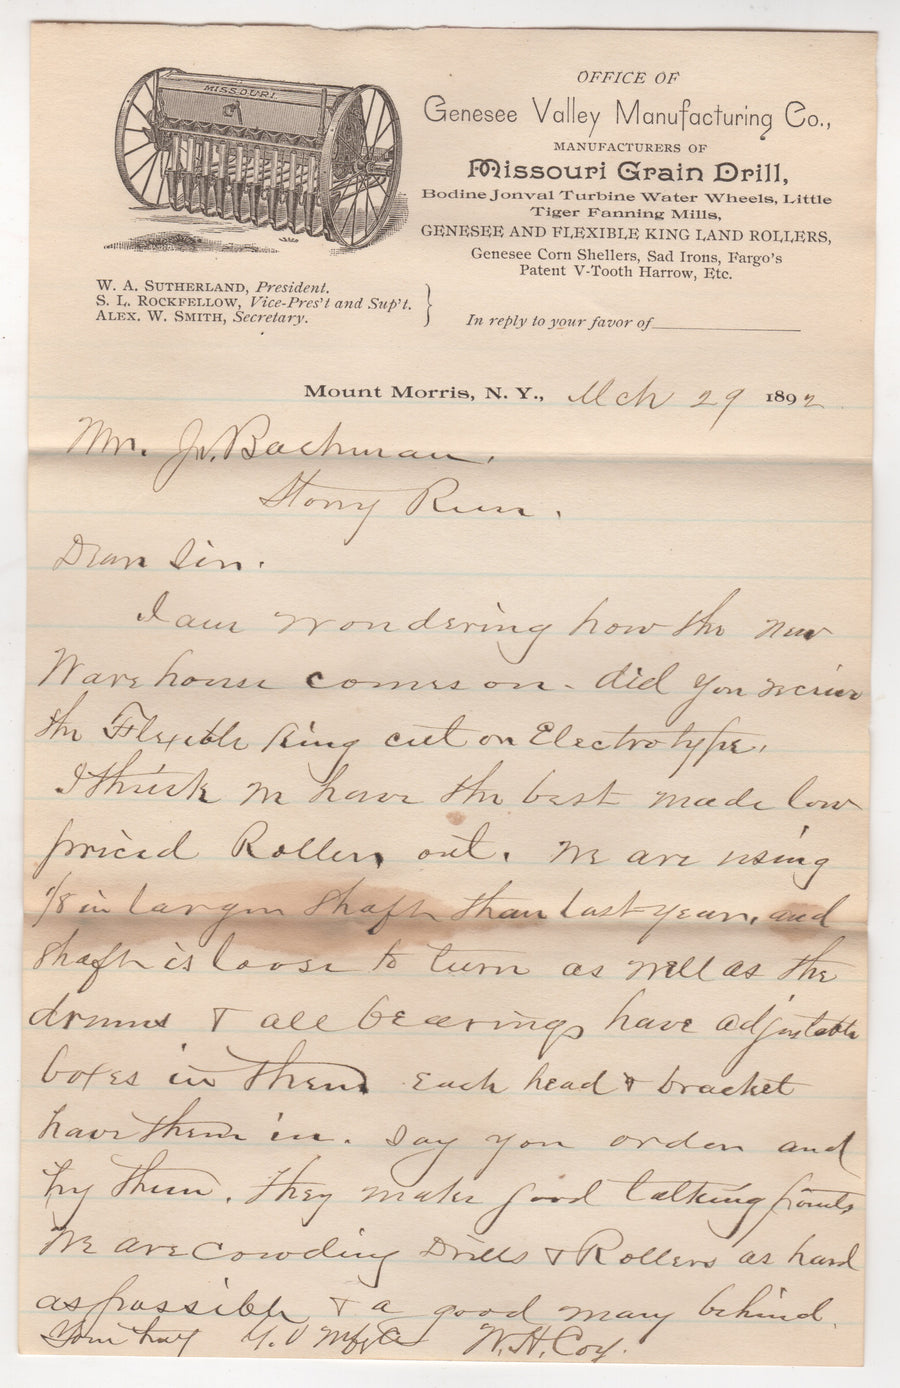 MISSOURI.
OFFICE OF
Genesee Valley Manufacturing Co.,
MANUFACTURERS OF
Missouri Grain Drill,
Bodine Jonval Turbine Water Wheels, Little
Tiger Fanning Mills,
GENESEE AND FLEXIBLE KING LAND ROLLERS,
Genesee Corn Shellers, Sad Irons, Fargo's
Patent V-Tooth Harrow, Etc.
W. A. SUTHERLAND, President.
S. L. ROCKFELLOW, Vice-Pres't and Sup't.
ALEX. W. SMITH, Secretary.
In reply to your favor of
Mount Morris, N. Y., Mch 29 1892
Mr. Bachman.
Stony Run.
Dear Sir.
I am wondering how the new
Warehouse comes on - did you receive
the Flexible King cut on Electrotype.
I think we have the best made low
priced Rollers out. We are using
1/8 in larger shaft than last year, and
shaft is loose to turn as well as the
drums & all bearings have adjustable
boxes in them Each head & bracket
have them in. Say you order and
try them. They make good talking points
We are Crowding Drills & Rollers as hard
as possible & a good many behind.
Your truly G. V Mfg Co W. H. Coy.